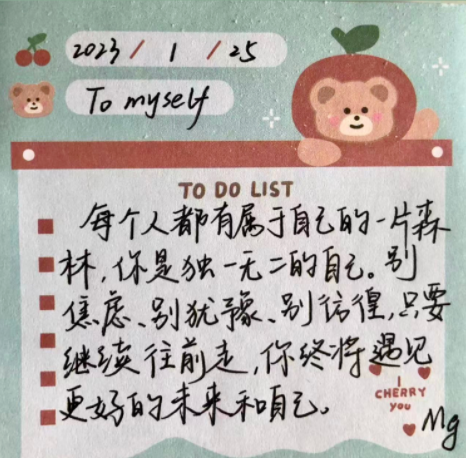 2023 / 1 / 25
To myself
TO DO LIST
每个人都有属于自己的一片森
林,你是独一无二的自己。别
焦虑、别犹豫、别彷徨,只要
继续往前走,你终将遇见
更好的未来和自己。
I
CHERRY
YOU
Mg